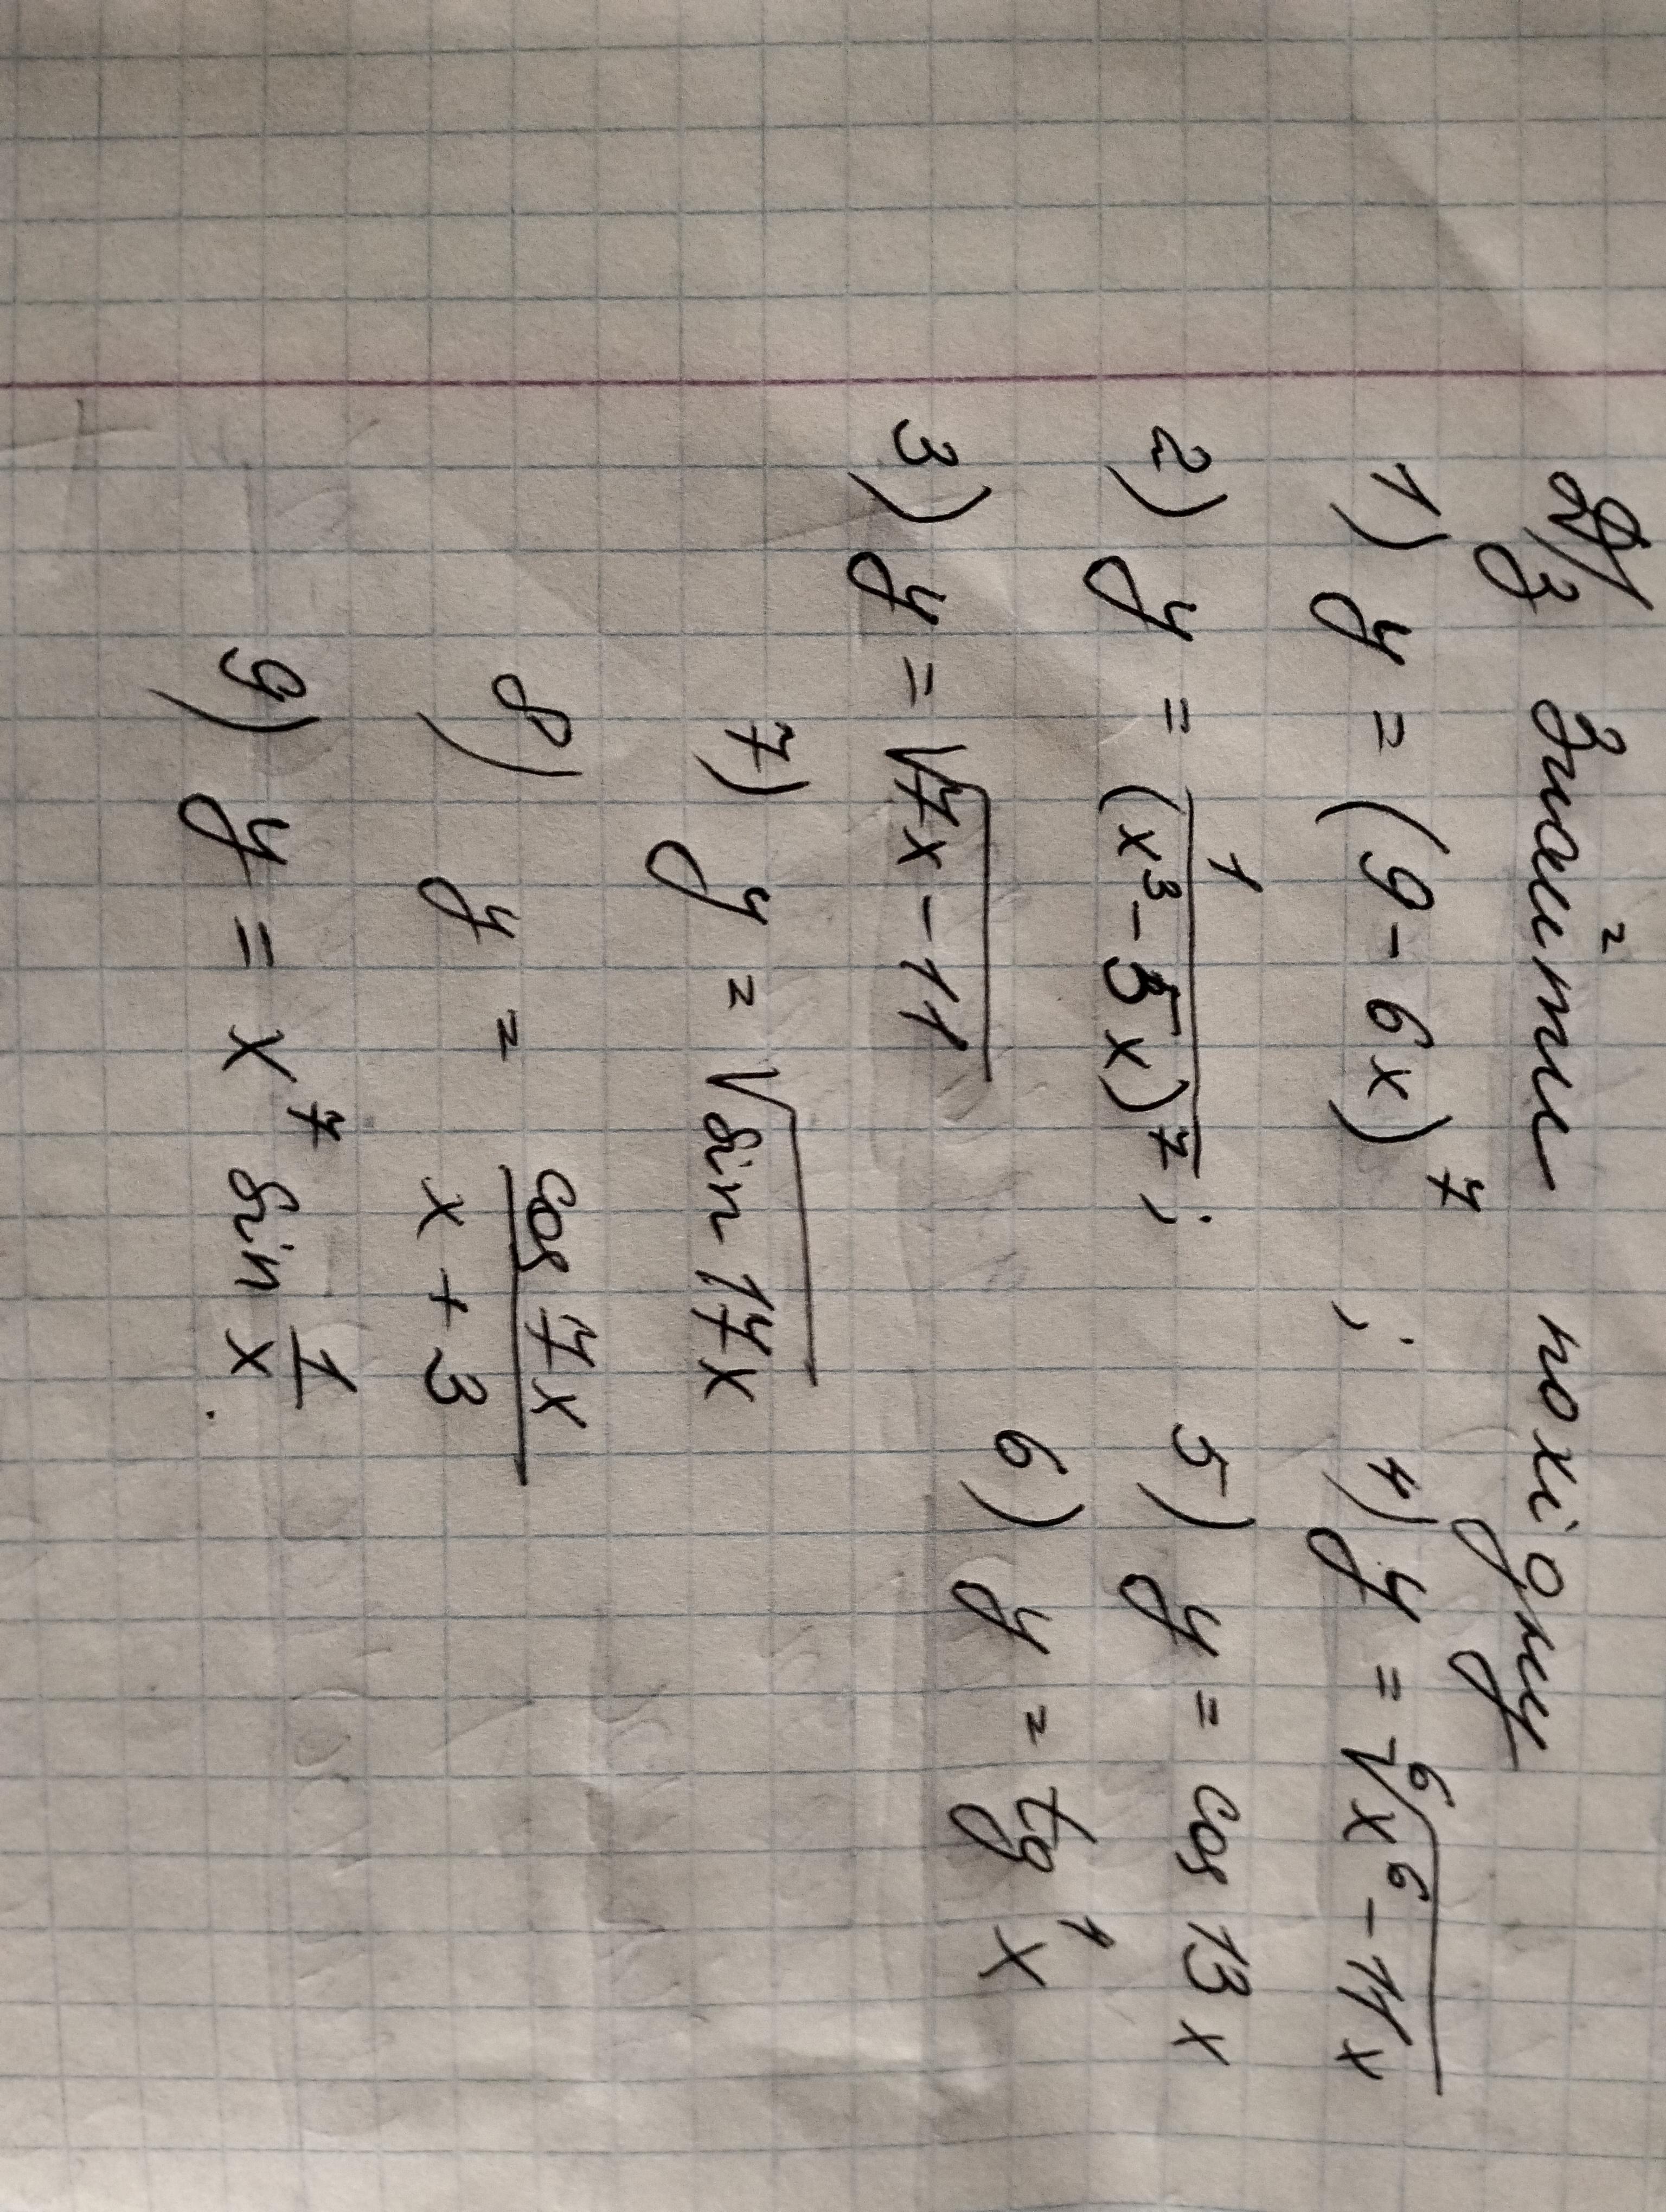 Д/з Знайти похідну
1) y = (9 - 6x)⁷ ; 4) y = ⁶√(x⁶ - 11x)
2) y = 1/(x³ - 5x)⁷ ; 5) y = cos 13x
3) y = √(7x - 11) 6) y = tg 1/x
7) y = √(sin 17x)
8) y = cos 7x/(x + 3)
9) y = x⁷ sin 1/x .